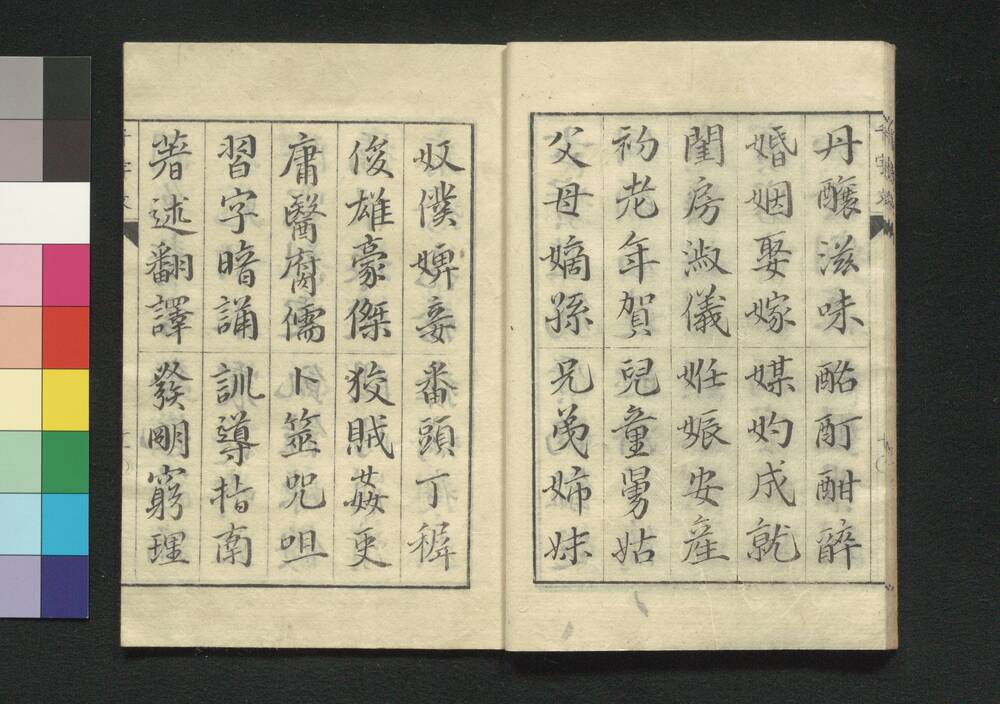 丹釀滋味酩酊酣醉
婚姻娶嫁媒妁成就
閨房淑儀妊娠安産
初老年賀兒童舅姑
父母嫡孫兄弟姉妹
奴僕婢妾番頭丁稚
俊雄豪傑狡賊姦吏
庸醫腐儒卜筮咒咀
習字暗誦訓導指南
著述翻譯發明窮理